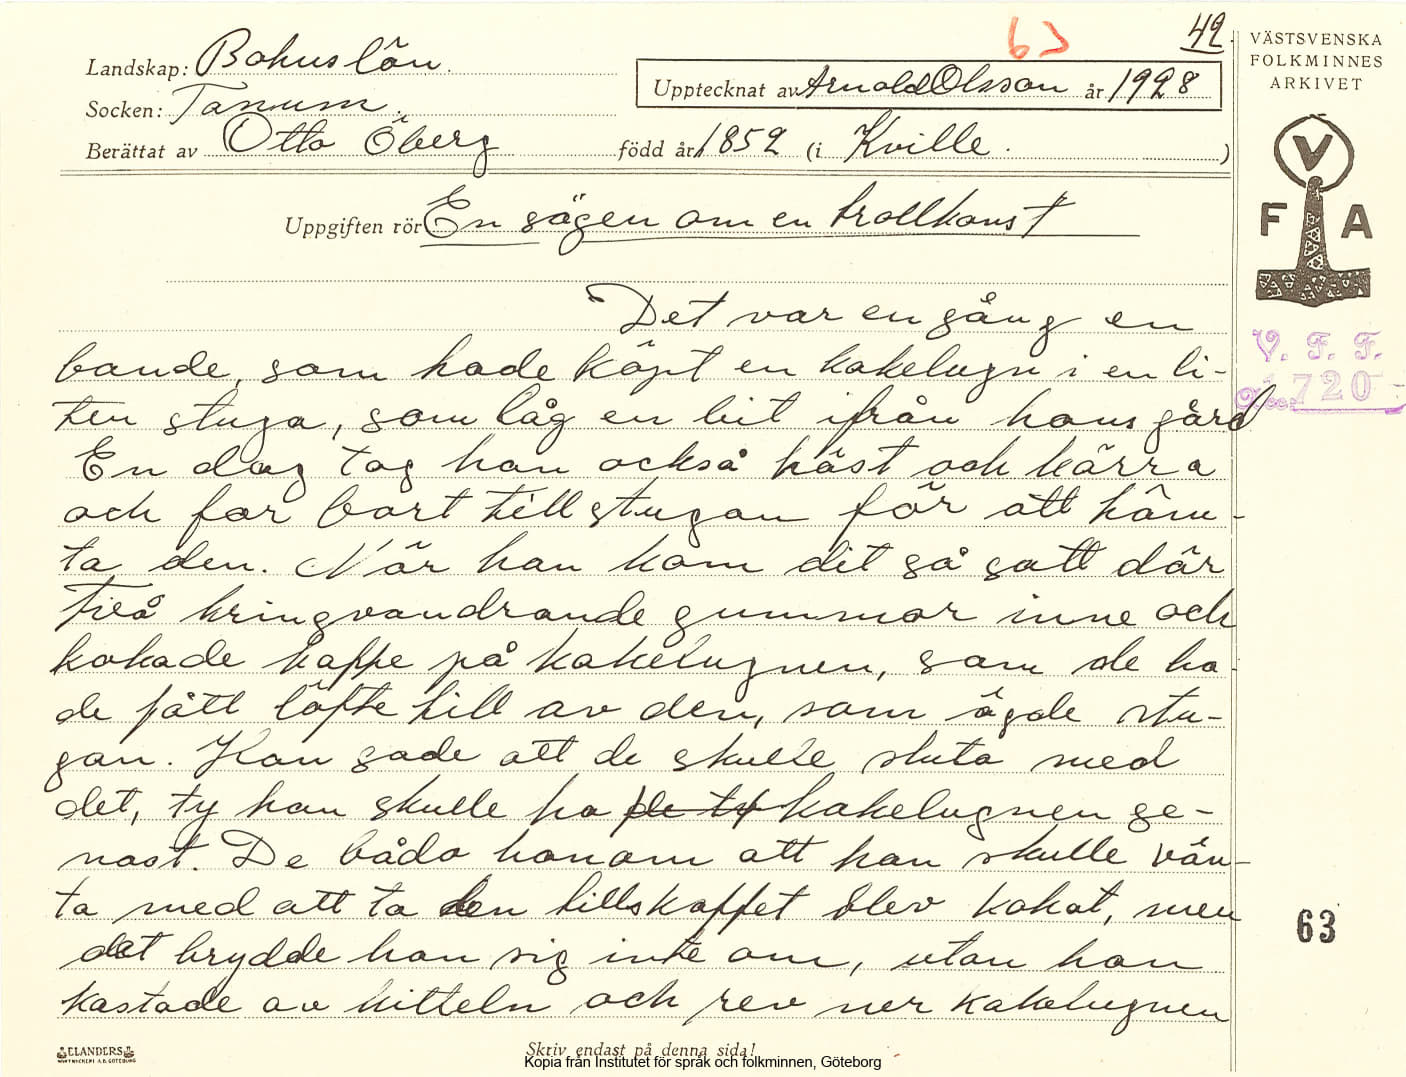 63
42.
Landskap: Bohuslän.
Socken: Tanum.
Upptecknat av Arnold Olsson år 1928
Berättat av Otto Öberg född år 1852 (i Kville. )
Uppgiften rör En sägen om en trollkonst
VÄSTSVENSKA
FOLKMINNES
ARKIVET
V
F A
V. F. F.
720
Det var en gång en
bonde, som hade köpt en kakelugn i en li-
ten stuga, som låg en bit ifrån hans gård
En dag tog han också häst och kärra
och for bort till stugan för att häm-
ta den. När han kom dit så satt där
två kringvandrande gummor inne och
kokade kaffe på kakelugnen, som de ha-
de fått löfte till av den, som ägde stu-
gan. Han sade att de skulle sluta med
det, ty han skulle ha kakelugnen ge-
nast. De bådo honom att han skulle vän-
ta med att ta den tills kaffet blev kokat, men
det brydde han sig inte om, utan han
kastade av kitteln och rev ner kakelugnen
63
ELANDERS
Skriv endast på denna sida!
Kopia från Institutet för språk och folkminnen, Göteborg